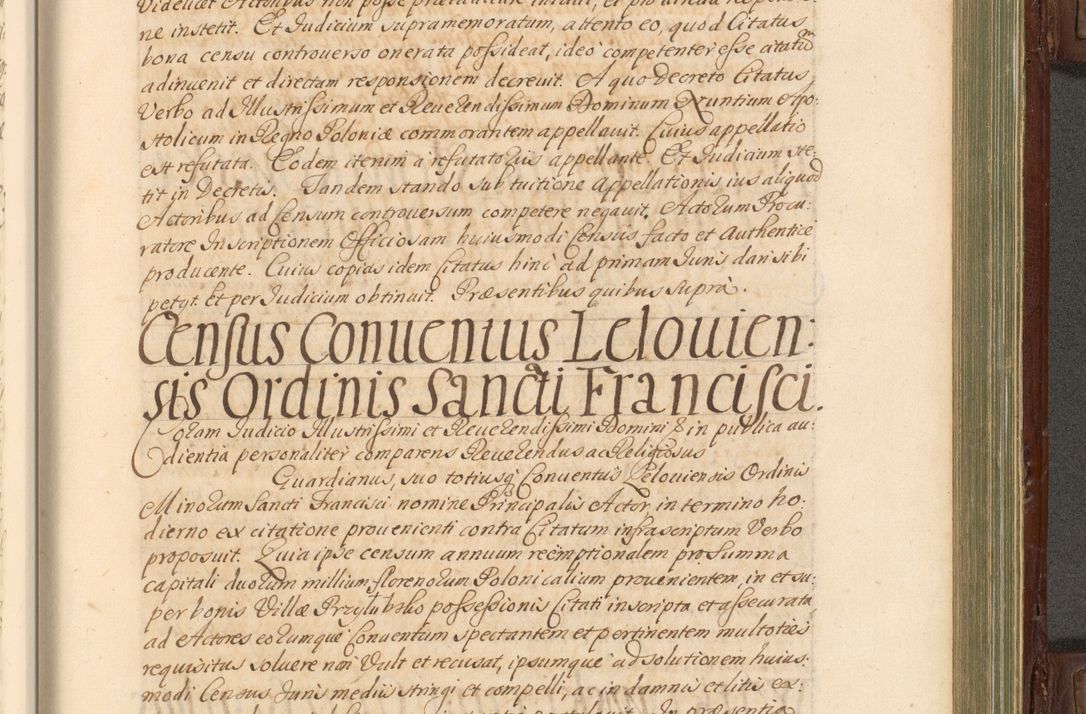 ne instetit. Et Judicium supramemoratum, attento eo, quod Citatus
bona censu controverso onerata possideat, ideo competenter esse citatum
adinvenit et directam responsionem decrevit. A quo decreto Citatus
Verbo ad Illustrissimum et Reverendissimum Dominum Nuntium Apo:
stolicum in Regno Poloniæ commorantem appellavit. Cuius appellatio
est refutata. Eodem iterum à refutatoriis appellante. Et Judicium ste:
tit in Decretis. Tandem stando sub tuitione Appellationis ius aliquod
Actoribus ad Censum controversum competere negavit. Actorum Procu:
ratore Inscriptionem Officiosam huiusmodi Census facto et Authenticè
producente. Cuius copias idem Citatus hinc ad primam Juris dari sibi
petijt Et per Judicium obtinuit. Præsentibus quibus suprà.
Census Conventus Lelovien:
sis Ordinis Sancti Francisci.
Coram Judicio Illustrissimi et Reverendissimi Domini & in publica au:
dientia personaliter comparens Reverendus ac Religiosus
Guardianus, suo totiusq Conventus Leloviensis Ordinis
Minorum Sancti Francisci nomine Principalis Actor, in termino ho:
dierno ex citatione provenienti contra Citatum infrascriptum Verbo
proposuit. Quia ipse censum annuum reemptionalem pro summa
capitali duorum millium florenorum Polonicalium provenientem, in et su:
per bonis Villæ possessionis Citati inscripta et assecurata,
ad Actores eorumque Conventum spectantem et pertinentem multoties
requisitus solvere non Vult et recusat, ipsumque ad solutionem huius:
modi Census Juris mediis stringi et compelli, ac in damnis et litis ex: